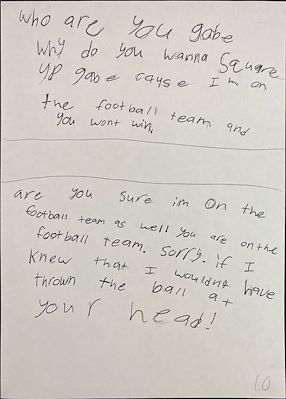 who are you gabe
Why do you wanna Square
up gabe cayse I'm on
the football team and
you wont win.
are you sure im on the
football team as well you are on the
football team. Sorry. if I
knew that I wouldnt have
thrown the ball at
your head!
10